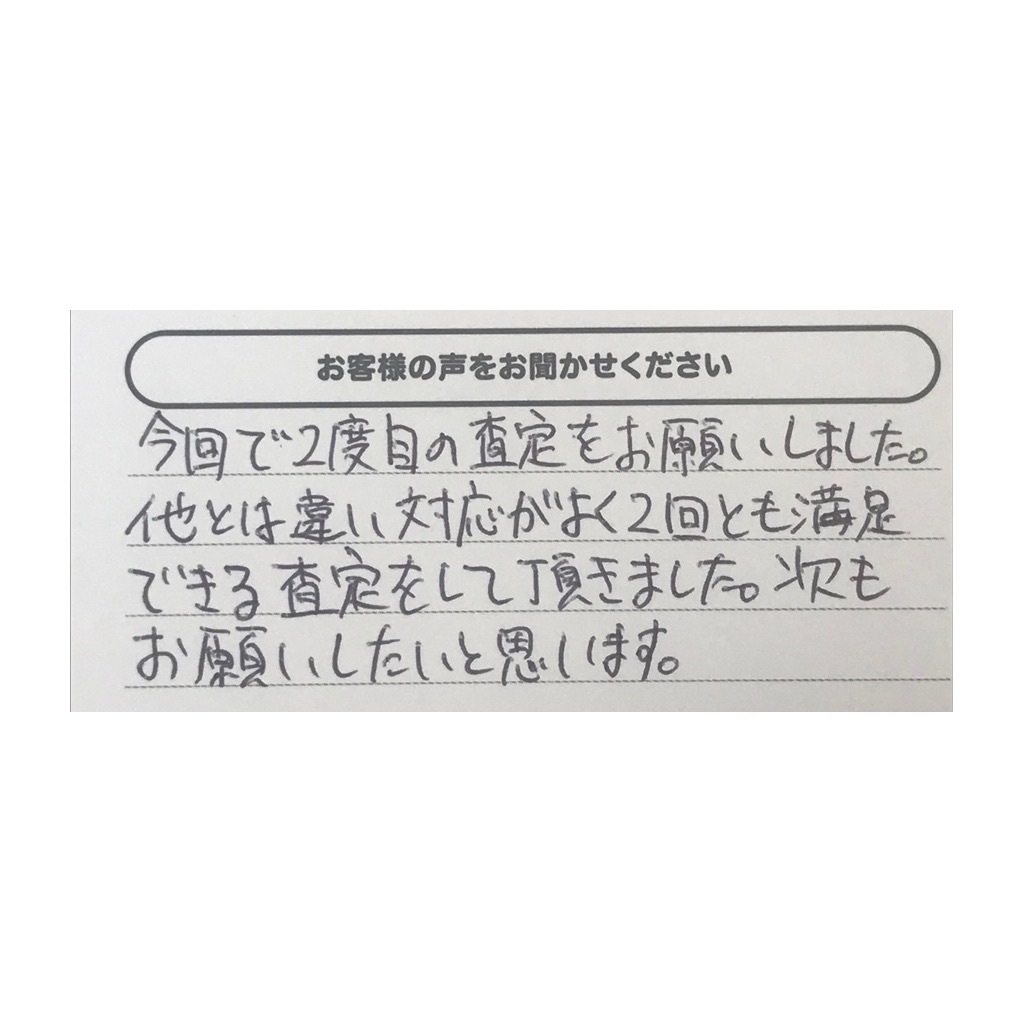 お客様の声をお聞かせください
今回で2度目の査定をお願いしました。
他とは違い対応がよく2回とも満足
できる査定をして頂きました。次も
お願いしたいと思います。